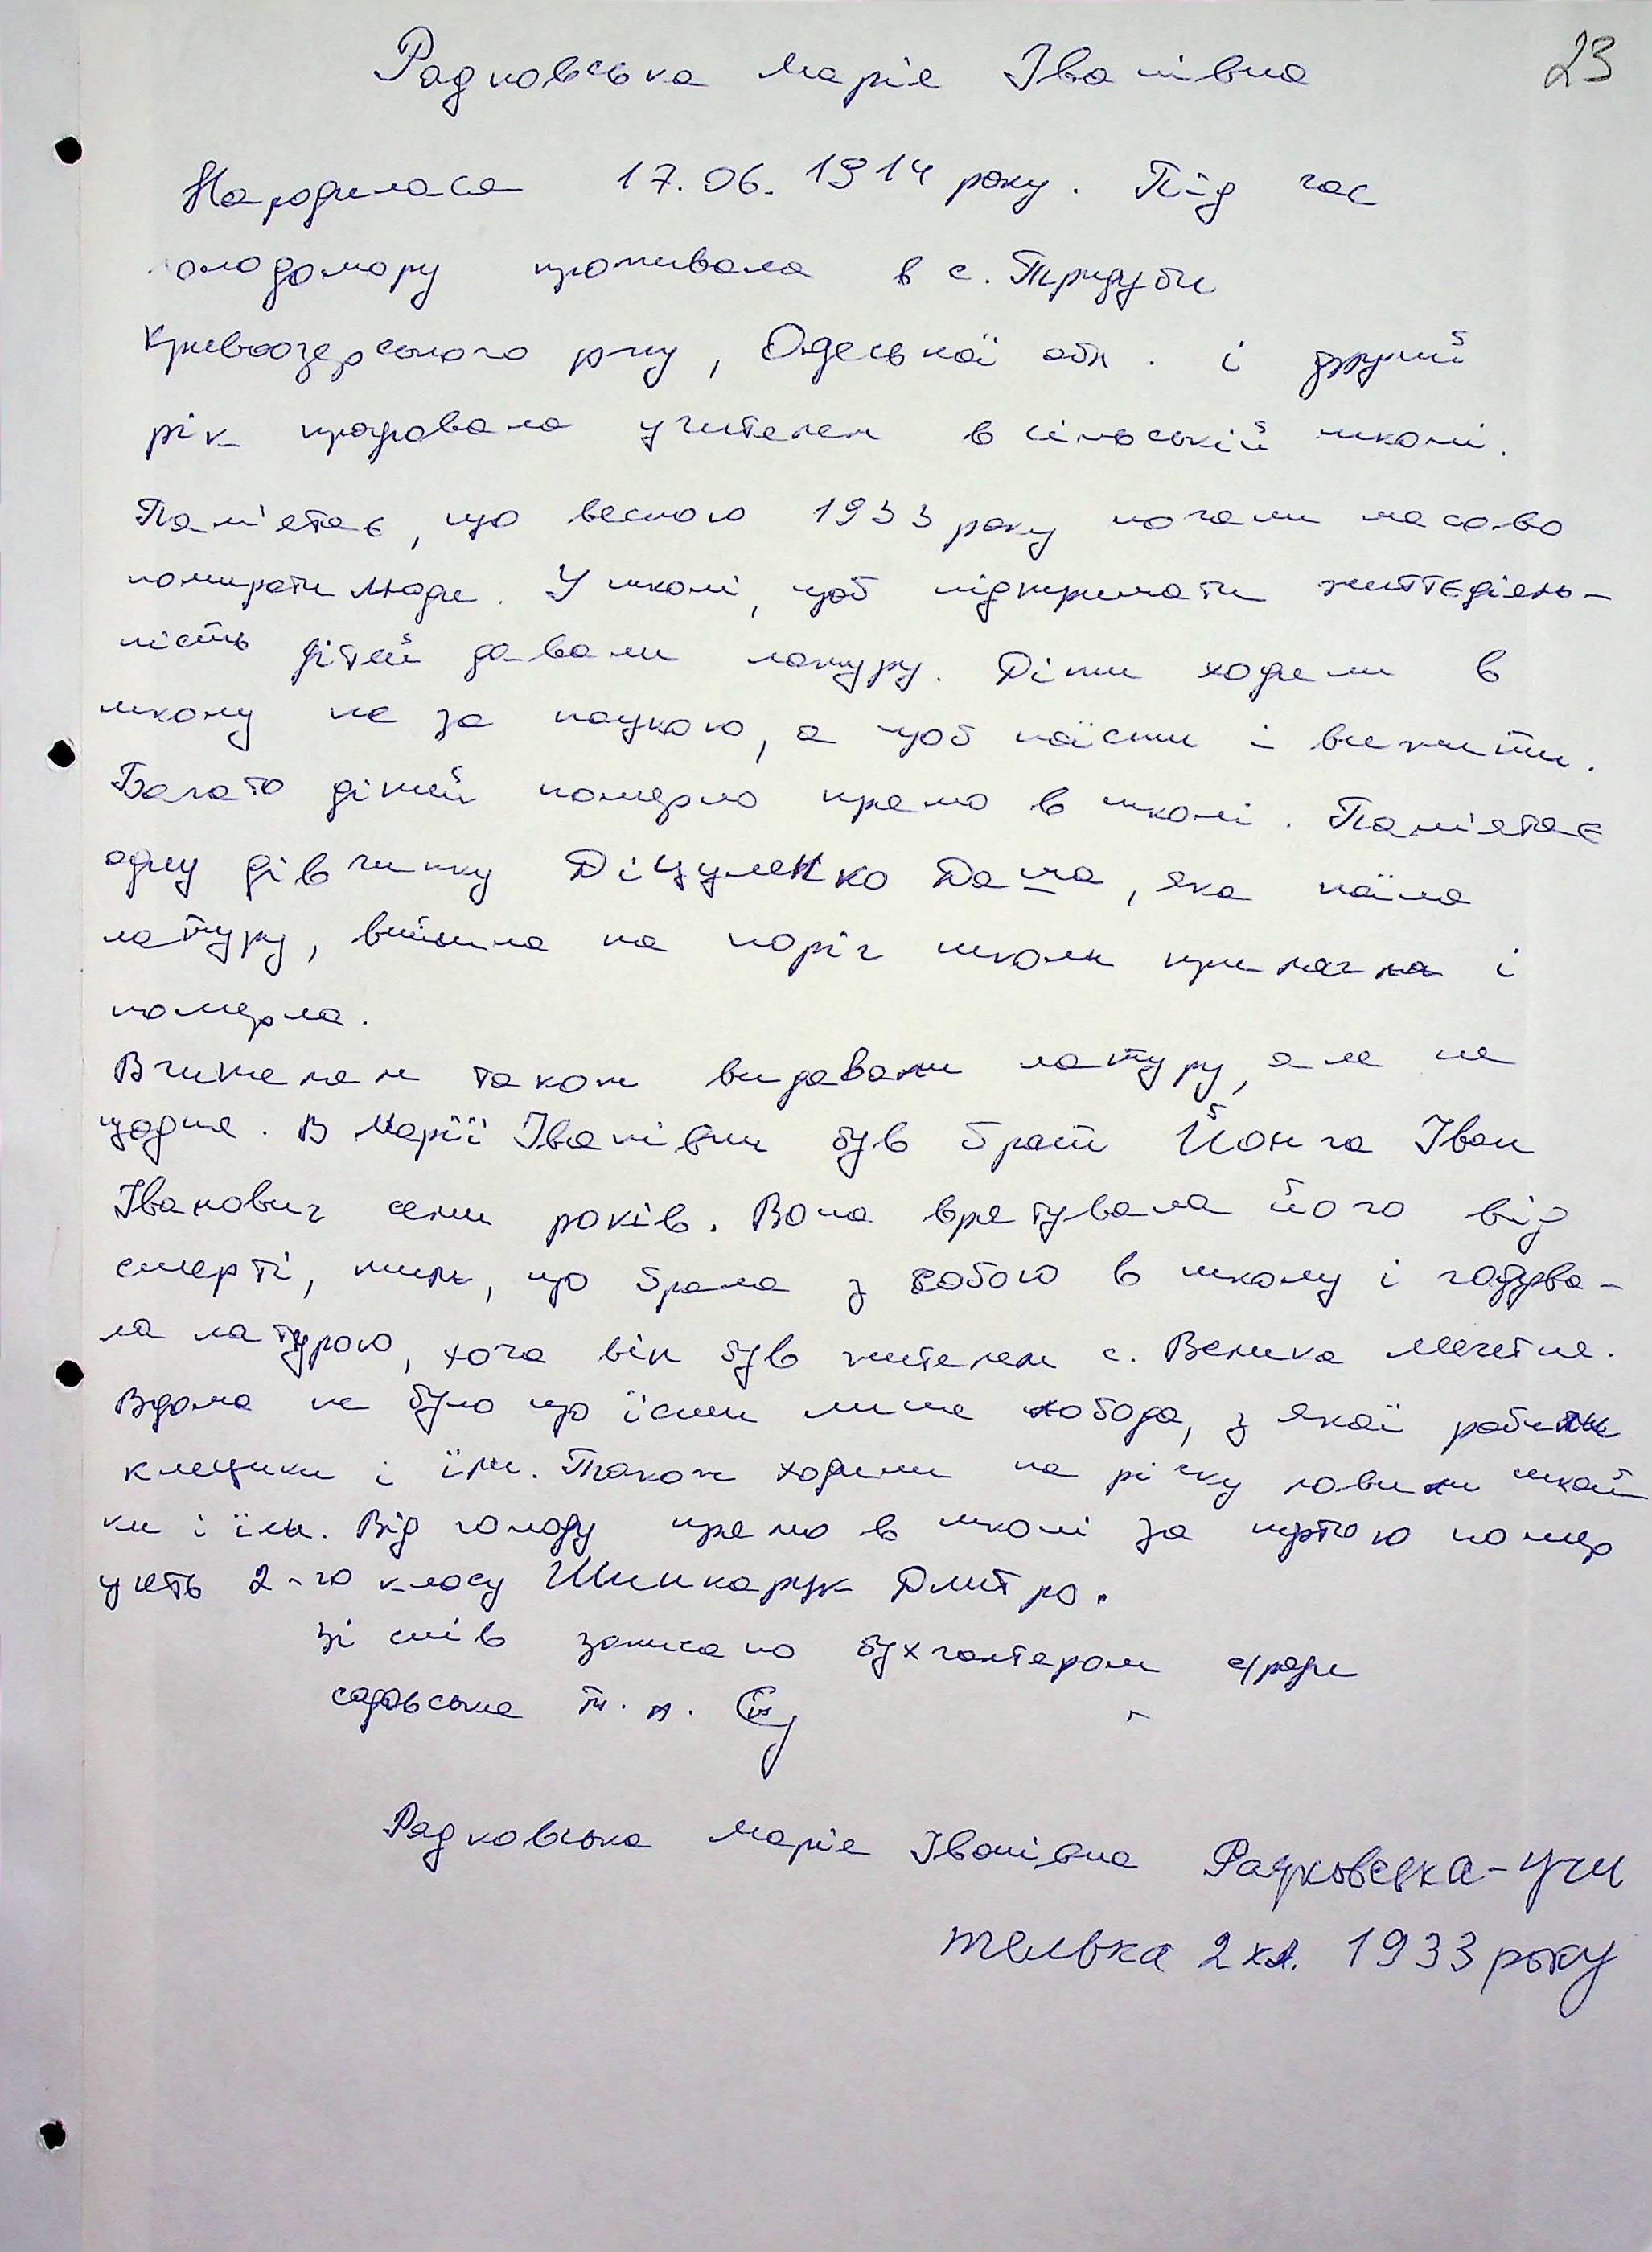 Радковська Марія Іванівна
23
Народилася 17.06.1914 року. Під час
голодомору проживала в с. Тридуби
Кривоозерського р-ну, Одеської обл. і другий
рік працювала учителем в сільській школі.
Пам'ятає, що весною 1933 року почали масово
помирати люди. У школі, щоб підтримати життєдіяль-
ність дітей давали латуру. Діти ходили в
школу не за наукою, а щоб поїсти і вижити.
Багато дітей померло прямо в школі. Пам'ятає
одну дівчинку Діцуленко Даша, яка поїла
латуру, вийшла на поріг школи прилягла і
померла.
Вчителям також видавали латуру, але не
щодня. В Марії Іванівни був брат Йонга Іван
Іванович семи років. Вона врятувала його від
смерті, тим, що брала з собою в школу і годува-
ла латурою, хоча він був жителем с. Велика Мечетня.
Вдома не було що їсти лише лобода, з якої робили
клецики і їли. Також ходили на річку ловили шкай
ки і їли. Від голоду прямо в школі за партою помер
учень 2-го класу Шинкарук Дмитро.
Зі слів записано бухгалтером с/ради
Садовська Т. А.
Радковська Марія Іванівна Радковська-учи
телька 2 кл. 1933 року